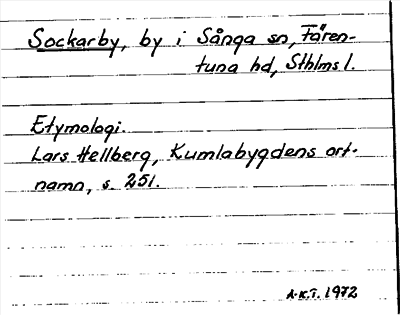 Sockarby, by i Sånga sn, Fären-
tuna hd, Sthlms l.
Etymologi.
Lars Hellberg, Kumlabygdens ort-
namn, s. 251.
A-K.T. 1972